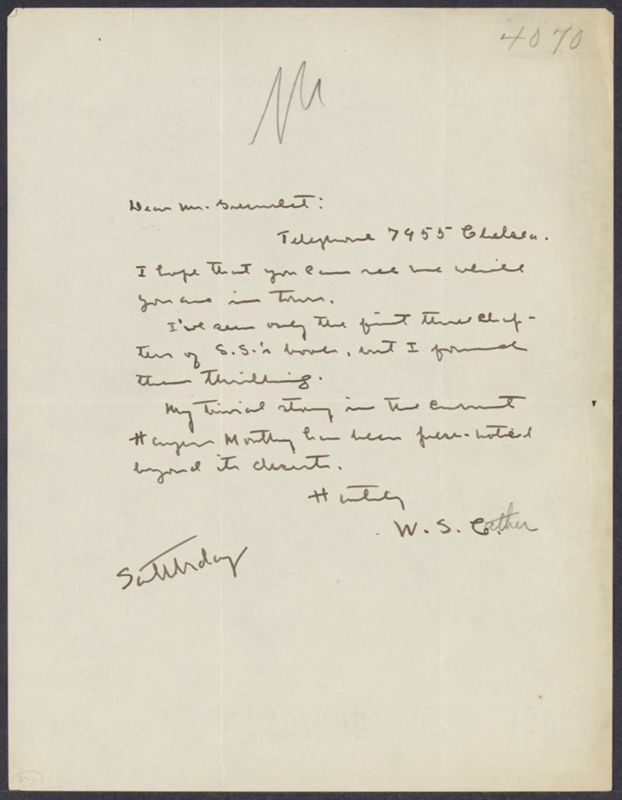 4070
Dear Mr. Greenslet:
Telephone 7955 Chelsea.
I hope that you can see me while
you are in town.
I've seen only the first three chap-
ters of S.S.'s book, but I found
them thrilling.
My trivial story in the current
Harpers Monthly has been press-noticed
beyond its deserts.
Hastily
W. S. Cather
Saturday